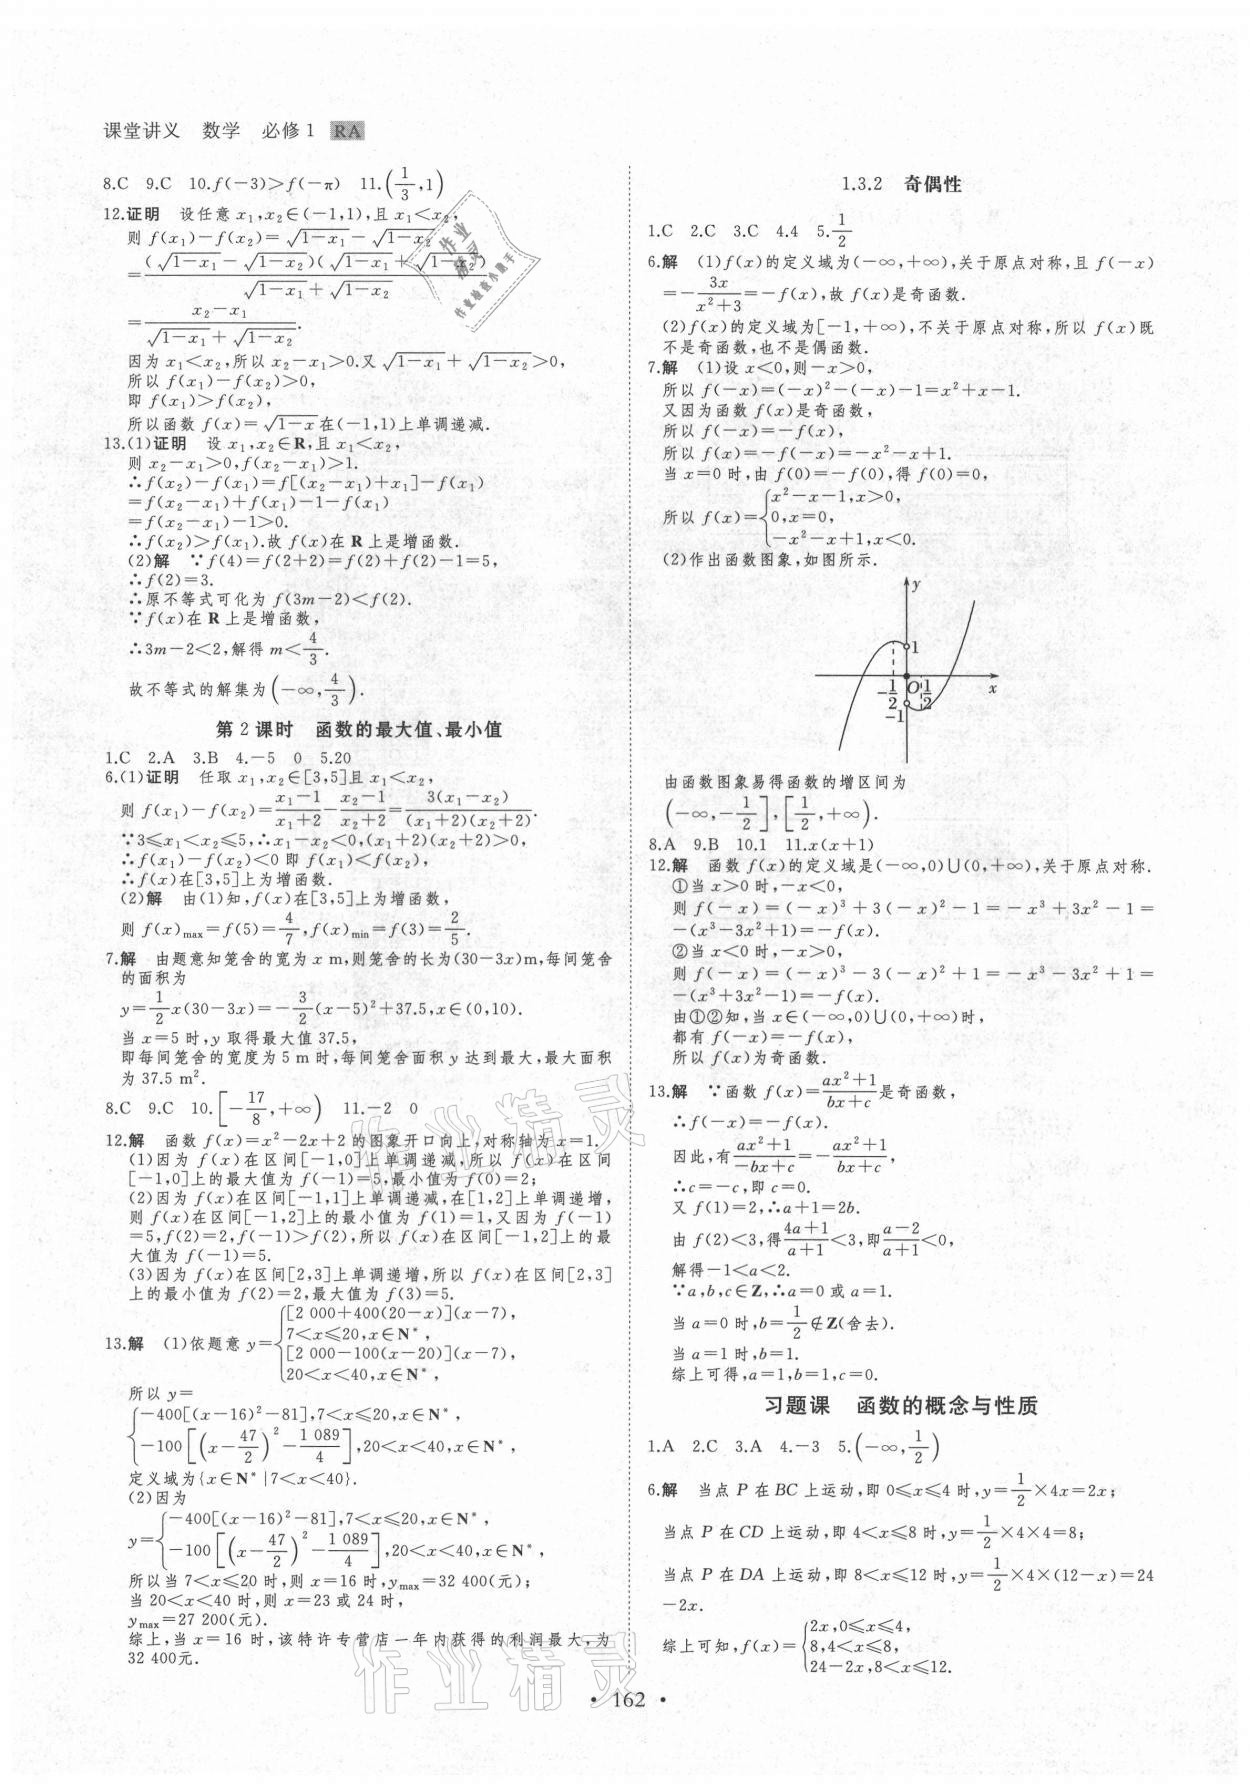 课堂讲义 数学 必修1 RA
8.C 9.C 10.f(-3)>f(-π) 11.(1/3,1)
12.证明 设任意 x₁,x₂∈(-1,1),且 x₁<x₂,
则 f(x₁)-f(x₂)=√(1-x₁)-√(1-x₂)
=(√(1-x₁)-√(1-x₂))(√(1-x₁)+√(1-x₂))/(√(1-x₁)+√(1-x₂))
=(x₂-x₁)/(√(1-x₁)+√(1-x₂)).
因为 x₁<x₂,所以 x₂-x₁>0.又 √(1-x₁)+√(1-x₂)>0,
所以 f(x₁)-f(x₂)>0,
即 f(x₁)>f(x₂),
所以函数 f(x)=√(1-x)在(-1,1)上单调递减.
13.(1)证明 设 x₁,x₂∈R,且 x₁<x₂,
则 x₂-x₁>0,f(x₂-x₁)>1.
∴f(x₂)-f(x₁)=f[(x₂-x₁)+x₁]-f(x₁)
=f(x₂-x₁)+f(x₁)-1-f(x₁)
=f(x₂-x₁)-1>0.
∴f(x₂)>f(x₁).故 f(x)在 R 上是增函数.
(2)解 ∵f(4)=f(2+2)=f(2)+f(2)-1=5,
∴f(2)=3.
∴原不等式可化为 f(3m-2)<f(2).
∵f(x)在 R 上是增函数,
∴3m-2<2,解得 m<4/3.
故不等式的解集为(-∞,4/3).
第 2 课时 函数的最大值、最小值
1.C 2.A 3.B 4.-5 0 5.20
6.(1)证明 任取 x₁,x₂∈[3,5]且 x₁<x₂,
则 f(x₁)-f(x₂)=(x₁-1)/(x₁+2)-(x₂-1)/(x₂+2)=3(x₁-x₂)/((x₁+2)(x₂+2)).
∵3≤x₁<x₂≤5,∴x₁-x₂<0,(x₁+2)(x₂+2)>0,
∴f(x₁)-f(x₂)<0 即 f(x₁)<f(x₂),
∴f(x)在[3,5]上为增函数.
(2)解 由(1)知,f(x)在[3,5]上为增函数,
则 f(x)max=f(5)=4/7,f(x)min=f(3)=2/5.
7.解 由题意知笼舍的宽为 x m,则笼舍的长为(30-3x)m,每间笼舍
的面积为
y=1/2x(30-3x)=-3/2(x-5)²+37.5,x∈(0,10).
当 x=5 时,y 取得最大值 37.5,
即每间笼舍的宽度为 5 m 时,每间笼舍面积 y 达到最大,最大面积
为 37.5 m².
8.C 9.C 10.[-17/8,+∞) 11.-2 0
12.解 函数 f(x)=x²-2x+2 的图象开口向上,对称轴为 x=1.
(1)因为 f(x)在区间[-1,0]上单调递减,所以 f(x)在区间
[-1,0]上的最大值为 f(-1)=5,最小值为 f(0)=2;
(2)因为 f(x)在区间[-1,1]上单调递减,在[1,2]上单调递增,
则 f(x)在区间[-1,2]上的最小值为 f(1)=1,又因为 f(-1)
=5,f(2)=2,f(-1)>f(2),所以 f(x)在区间[-1,2]上的最
大值为 f(-1)=5.
(3)因为 f(x)在区间[2,3]上单调递增,所以 f(x)在区间[2,3]
上的最小值为 f(2)=2,最大值为 f(3)=5.
13.解 (1)依题意 y={[2 000+400(20-x)](x-7),
7<x≤20,x∈N*,
[2 000-100(x-20)](x-7),
20<x<40,x∈N*,
所以 y=
{-400[(x-16)²-81],7<x≤20,x∈N*,
-100[(x-47/2)²-1 089/4],20<x<40,x∈N*,
定义域为{x∈N*|7<x<40}.
(2)因为
y={-400[(x-16)²-81],7<x≤20,x∈N*,
-100[(x-47/2)²-1 089/4],20<x<40,x∈N*,
所以当 7<x≤20 时,则 x=16 时,ymax=32 400(元);
当 20<x<40 时,则 x=23 或 24 时,
ymax=27 200(元).
综上,当 x=16 时,该特许专营店一年内获得的利润最大,为
32 400元.
1.3.2 奇偶性
1.C 2.C 3.C 4.4 5.1/2
6.解 (1)f(x)的定义域为(-∞,+∞),关于原点对称,且 f(-x)
=-3x/(x²+3)=-f(x),故 f(x)是奇函数.
(2)f(x)的定义域为[-1,+∞),不关于原点对称,所以 f(x)既
不是奇函数,也不是偶函数.
7.解 (1)设 x<0,则-x>0,
所以 f(-x)=(-x)²-(-x)-1=x²+x-1.
又因为函数 f(x)是奇函数,
所以 f(-x)=-f(x),
所以 f(x)=-f(-x)=-x²-x+1.
当 x=0 时,由 f(0)=-f(0),得 f(0)=0,
所以 f(x)={x²-x-1,x>0,
0,x=0,
-x²-x+1,x<0.
(2)作出函数图象,如图所示.
y
1
-1/2 O 1/2 x
-1
由函数图象易得函数的增区间为
(-∞,-1/2],[1/2,+∞).
8.A 9.B 10.1 11.x(x+1)
12.解 函数 f(x)的定义域是(-∞,0)∪(0,+∞),关于原点对称.
①当 x>0 时,-x<0,
则 f(-x)=(-x)³+3(-x)²-1=-x³+3x²-1=
-(x³-3x²+1)=-f(x).
②当 x<0 时,-x>0,
则 f(-x)=(-x)³-3(-x)²+1=-x³-3x²+1=
-(x³+3x²-1)=-f(x).
由①②知,当 x∈(-∞,0)∪(0,+∞)时,
都有 f(-x)=-f(x),
所以 f(x)为奇函数.
13.解 ∵函数 f(x)=(ax²+1)/(bx+c)是奇函数,
∴f(-x)=-f(x).
因此,有(ax²+1)/(-bx+c)=-(ax²+1)/(bx+c),
∴c=-c,即 c=0.
又 f(1)=2,∴a+1=2b.
由 f(2)<3,得(4a+1)/(a+1)<3,即(a-2)/(a+1)<0,
解得-1<a<2.
∵a,b,c∈Z,∴a=0 或 a=1.
当 a=0 时,b=1/2∉Z(舍去).
当 a=1 时,b=1.
综上可得,a=1,b=1,c=0.
习题课 函数的概念与性质
1.A 2.C 3.A 4.-3 5.(-∞,1/2)
6.解 当点 P 在 BC 上运动,即 0≤x≤4 时,y=1/2×4x=2x;
当点 P 在 CD 上运动,即 4<x≤8 时,y=1/2×4×4=8;
当点 P 在 DA 上运动,即 8<x≤12 时,y=1/2×4×(12-x)=24
-2x.
综上可知,f(x)={2x,0≤x≤4,
8,4<x≤8,
24-2x,8<x≤12.
· 162 ·
作业精灵
作业精灵
作业精灵